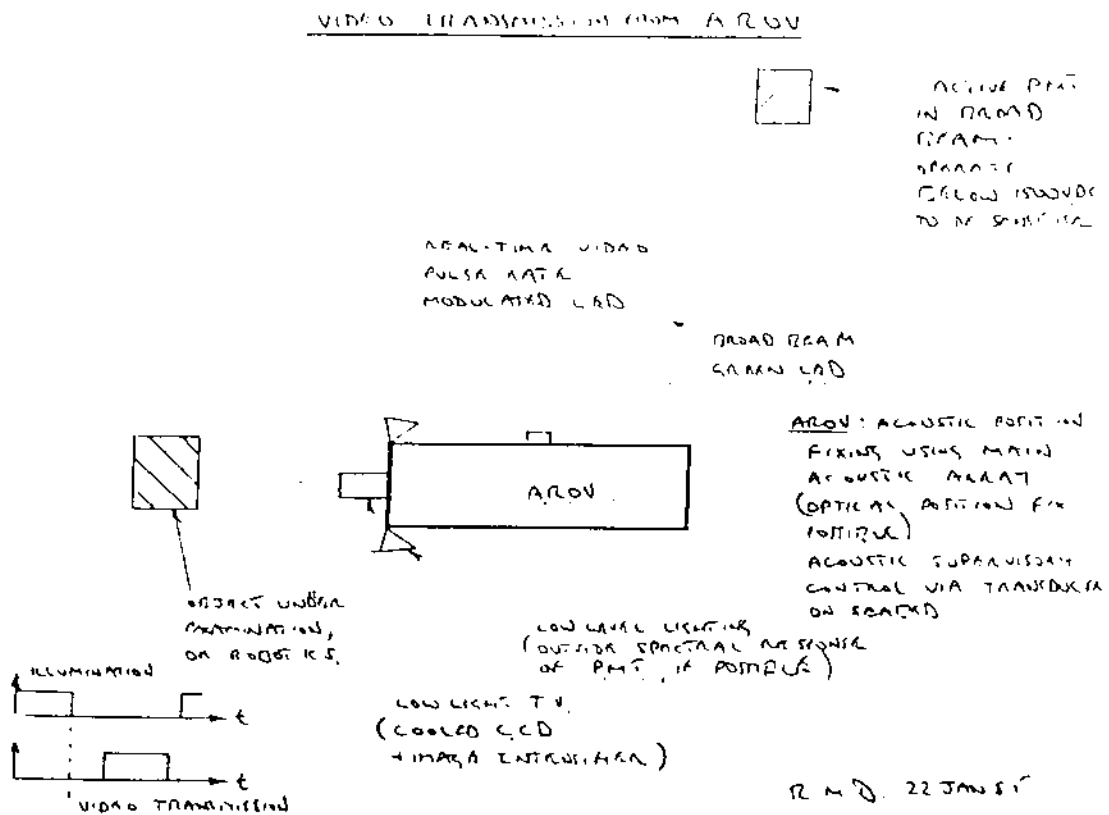 VIDEO TRANSMISSION FROM AROV
ACTIVE PMT
IN BROAD
BEAM.
OPERATE
BELOW 1500VDC
TO BE
REAL-TIME VIDEO
PULSE RATE
MODULATED LED
BROAD BEAM
GREEN LED
AROV: ACOUSTIC POSITION
FIXING USING MAIN
ACOUSTIC ARRAY
(OPTICAL POSITION FIX
POSSIBLE)
ACOUSTIC SUPERVISORY
CONTROL VIA TRANSDUCER
ON SEABED
AROV
OBJECT UNDER
EXAMINATION,
OR ROBOTICS.
LOW LEVEL LIGHTING
(OUTSIDE SPECTRAL RESPONSE
OF PMT, IF POSSIBLE)
LOW LIGHT T.V.
(COOLED CCD
+ IMAGE INTENSIFIER)
ILLUMINATION
t
t
VIDEO TRANSMISSION
R M D. 22 JAN